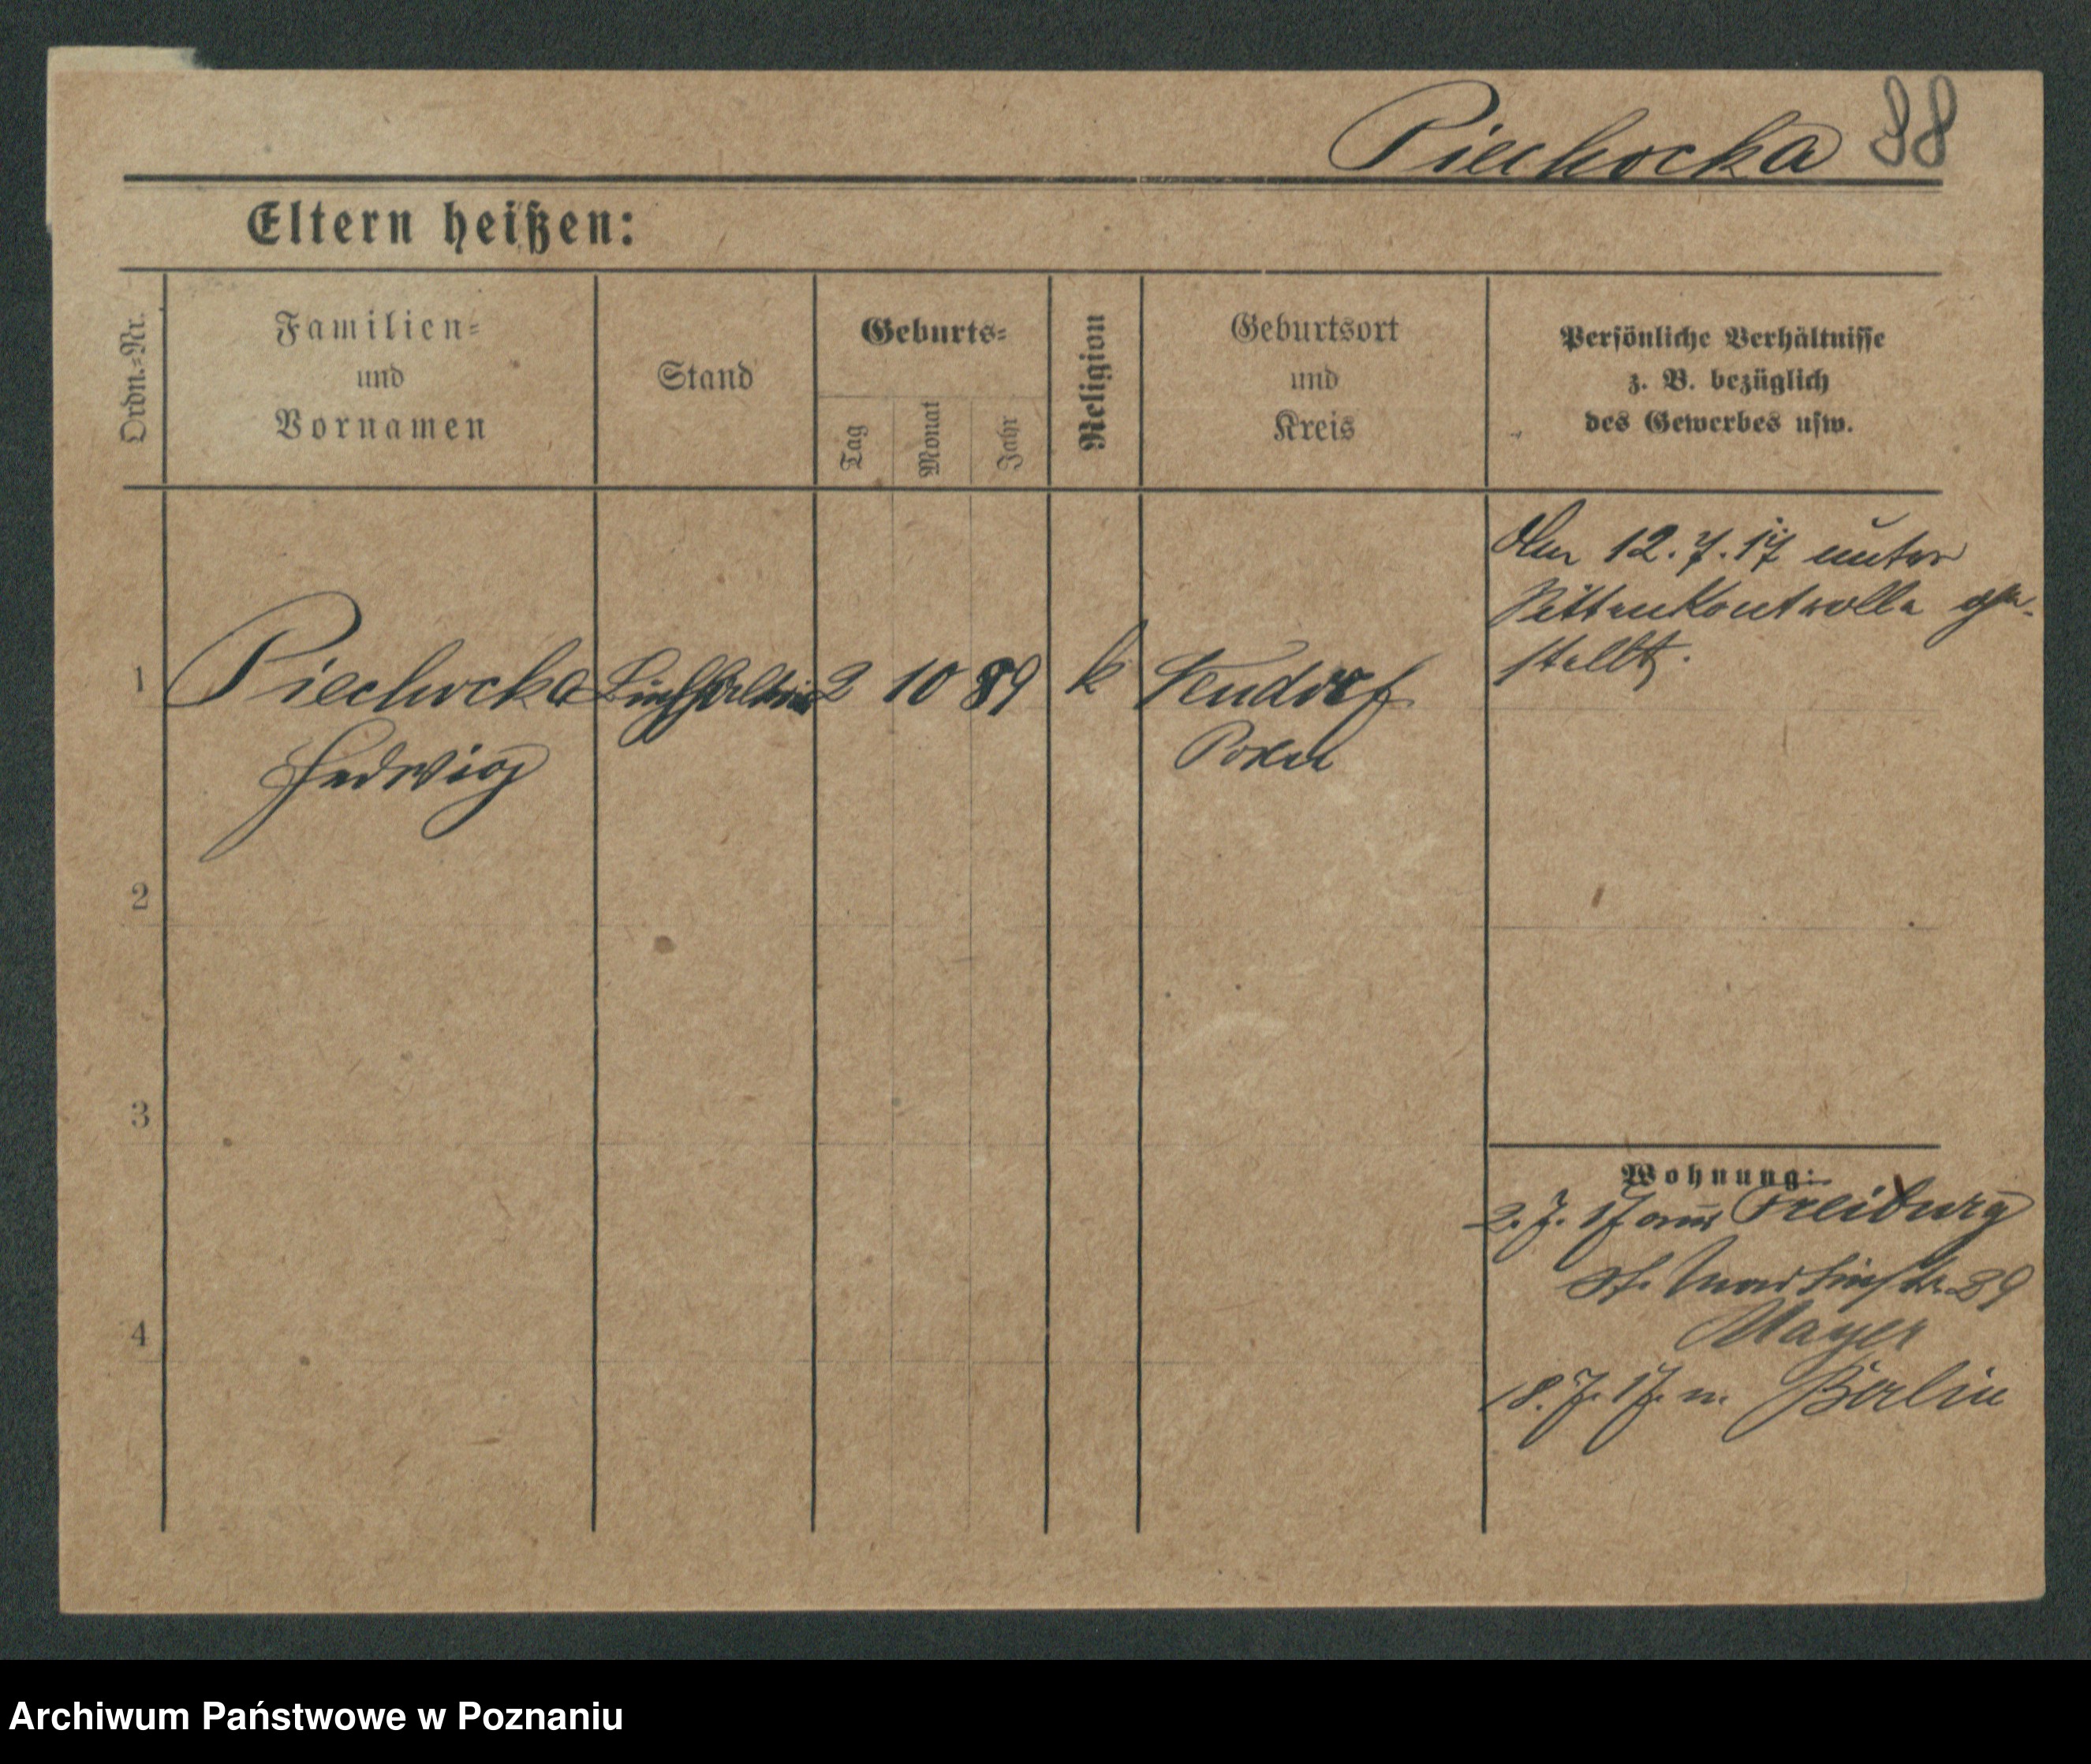 Piechocka 98
Eltern heißen:
Ordn.=Nr.
Familien=
und
Vornamen
Stand
Geburts=
Tag
Monat
Jahr
Religion
Geburtsort
und
Kreis
Persönliche Verhältnisse
z. B. bezüglich
des Gewerbes usw.
Am 12.7.17 unter
Sittenkontrolle ge-
stellt.
1 Piechocka Buchhalterin 2 10 89 k Neudorf
Hedwig Posen
2
3
4
Wohnung:
2.7.17 aus Freiburg
St. Martinstr. 39
Mayer
18.7.17. n. Berlin
Archiwum Państwowe w Poznaniu